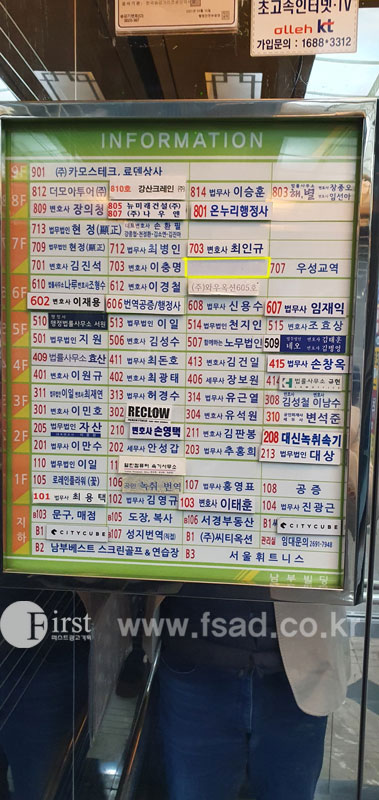 초고속인터넷·TV
olleh kt
가입문의 : 1688*3312
INFORMATION
9F 901 (주)카모스테크, 료덴상사
8F 812 더모아투어(주) 810호 강산크레인(주) 814 법무사 이승훈 803 법률사무소 해,별 변호사 장홍오 변호사 임선아
809 변호사 장의칠 805 뉴미래건설(주) 807 (주)나우앤 801 온누리행정사
7F 713 법무법인 현정(顯正) 대표변호사 손환필
709 법무법인 현정(顯正) 712 법무사 최병인 703 변호사 최인규
701 변호사 김진석 703 변호사 이충명 707 우성교역
6F 610 법률사무소 나루 변호사 조형수 612 변호사 이경철 (주)와우옥션605호
602 변호사 이재용 606 번역공증/행정사 608 법무사 신용수 607 법무사 임재익
5F 510 행정사 행정법률사무소 서원 513 법무법인 이일 514 법무법인 천지인 515 변호사 조효상
501 법무사 지원 506 변호사 김성수 507 법무법인 노무법인 509 네오
4F 409 법률사무소 효산 411 법무사 최돈호 413 변호사 김건일 415 법무사 손창옥
401 변호사 이원구 402 변호사 최광수 406 세무사 장보원 414 법률사무소 규현
3F 311 변호사 이일 변호사 최제연 313 법무사 허경태 314 법무사 유근열 308 변호사 김성철 이남수
301 변호사 이민호 302 RECLOW 304 변호사 유석원 310 변석준
2F 205 법무법인 자산 210 변호사 손영택 211 변호사 김판봉 208 대신녹취속기
201 변호사 이만수 202 법무사 안성갑 203 법무사 추흥희 213 법무법인 대상
1F 110 법무법인 이일 111 일런컴퓨터 속기사무소
105 로레인플라워(꽃) 106 녹취·번역 107 법무사 홍영표 108 공증
101 법무사 최용택 102 법무사 김영규 103 변호사 이태훈 104 법무사 진광근
지하 B103 문구, 매점 B105 도장, 복사 B106 서경부동산 B1 CITYCUBE
B1 CITYCUBE B107 성지번역(직접) B1 (주)씨티옥션 관리실 임대문의 2691-7948
B2 남부베스트 스크린골프 & 연습장 B3 서울휘트니스
남부빌딩
First
퍼스트광고기획
www.fsad.co.kr